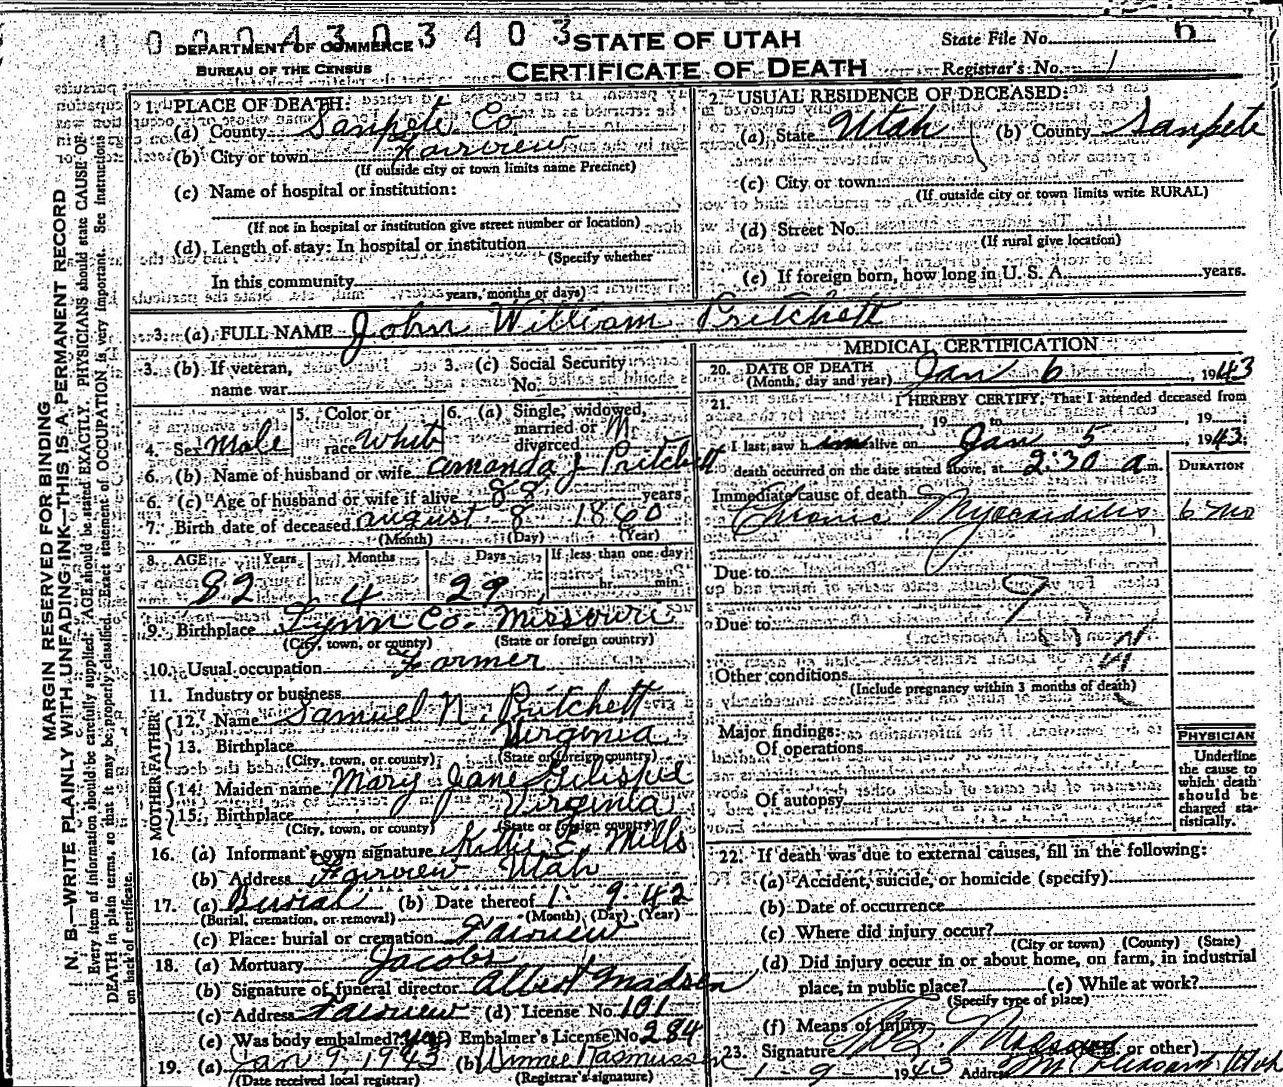 0 0 0 4 3 0 3 4 0 3
DEPARTMENT OF COMMERCE
BUREAU OF THE CENSUS
STATE OF UTAH
CERTIFICATE OF DEATH
State File No. 6
Registrar's No. 1
MARGIN RESERVED FOR BINDING
N. B.—WRITE PLAINLY WITH UNFADING INK—THIS IS A PERMANENT RECORD
Every item of information should be carefully supplied. AGE should be stated EXACTLY. PHYSICIANS should state CAUSE OF
DEATH in plain terms, so that it may be properly classified. Exact statement of OCCUPATION is very important. See instructions
on back of certificate.
1. PLACE OF DEATH:
(a) County Sanpete Co
(b) City or town Fairview
(If outside city or town limits name Precinct)
(c) Name of hospital or institution:
(If not in hospital or institution give street number or location)
(d) Length of stay: In hospital or institution
(Specify whether
In this community
years, months or days)
2. USUAL RESIDENCE OF DECEASED:
(a) State Utah (b) County Sanpete
(c) City or town
(If outside city or town limits write RURAL)
(d) Street No.
(If rural give location)
(e) If foreign born, how long in U. S. A. years.
3. (a) FULL NAME John William Pritchett
3. (b) If veteran, name war
3. (c) Social Security No.
4. Sex Male
5. Color or race White
6. (a) Single, widowed, married or divorced M
6. (b) Name of husband or wife Amanda J Pritchett
6. (c) Age of husband or wife if alive 88 years
7. Birth date of deceased August 8 1860
(Month) (Day) (Year)
8. AGE: Years Months Days If less than one day
82 4 29 hr. min.
9. Birthplace Lynn Co. Missouri
(City, town, or county) (State or foreign country)
10. Usual occupation Farmer
11. Industry or business
FATHER
12. Name Samuel N. Pritchett
13. Birthplace Virginia
(City, town, or county) (State or foreign country)
MOTHER
14. Maiden name Mary Jane Gilispie
15. Birthplace Virginia
(City, town, or county) (State or foreign country)
16. (a) Informant's own signature E. Mills
(b) Address Fairview Utah
17. (a) Burial (b) Date thereof 1 9 42
(Burial, cremation, or removal) (Month) (Day) (Year)
(c) Place: burial or cremation Fairview
18. (a) Mortuary Jacobs
(b) Signature of funeral director Albert Madsen
(c) Address Fairview (d) License No. 101
(e) Was body embalmed? yes (f) Embalmer's License No. 284
19. (a) Jan 9, 1943 (b) Winnie Rasmussen
(Date received local registrar) (Registrar's signature)
MEDICAL CERTIFICATION
20. DATE OF DEATH
(Month, day and year) Jan 6, 1943
21. I HEREBY CERTIFY, That I attended deceased from
, 19 to , 19
I last saw h im alive on Jan 5, 1943
death occurred on the date stated above, at 2:30 a m.
DURATION
Immediate cause of death
Chronic Myocarditis 6 mo
Due to
Due to
Other conditions
(Include pregnancy within 3 months of death)
Major findings:
Of operations
Of autopsy
PHYSICIAN
Underline
the cause to
which death
should be
charged sta-
tistically.
22. If death was due to external causes, fill in the following:
(a) Accident, suicide, or homicide (specify)
(b) Date of occurrence
(c) Where did injury occur?
(City or town) (County) (State)
(d) Did injury occur in or about home, on farm, in industrial
place, in public place? (e) While at work?
(Specify type of place)
(f) Means of injury
23. Signature or other)
1 9 1943 Address Mt Pleasant Utah